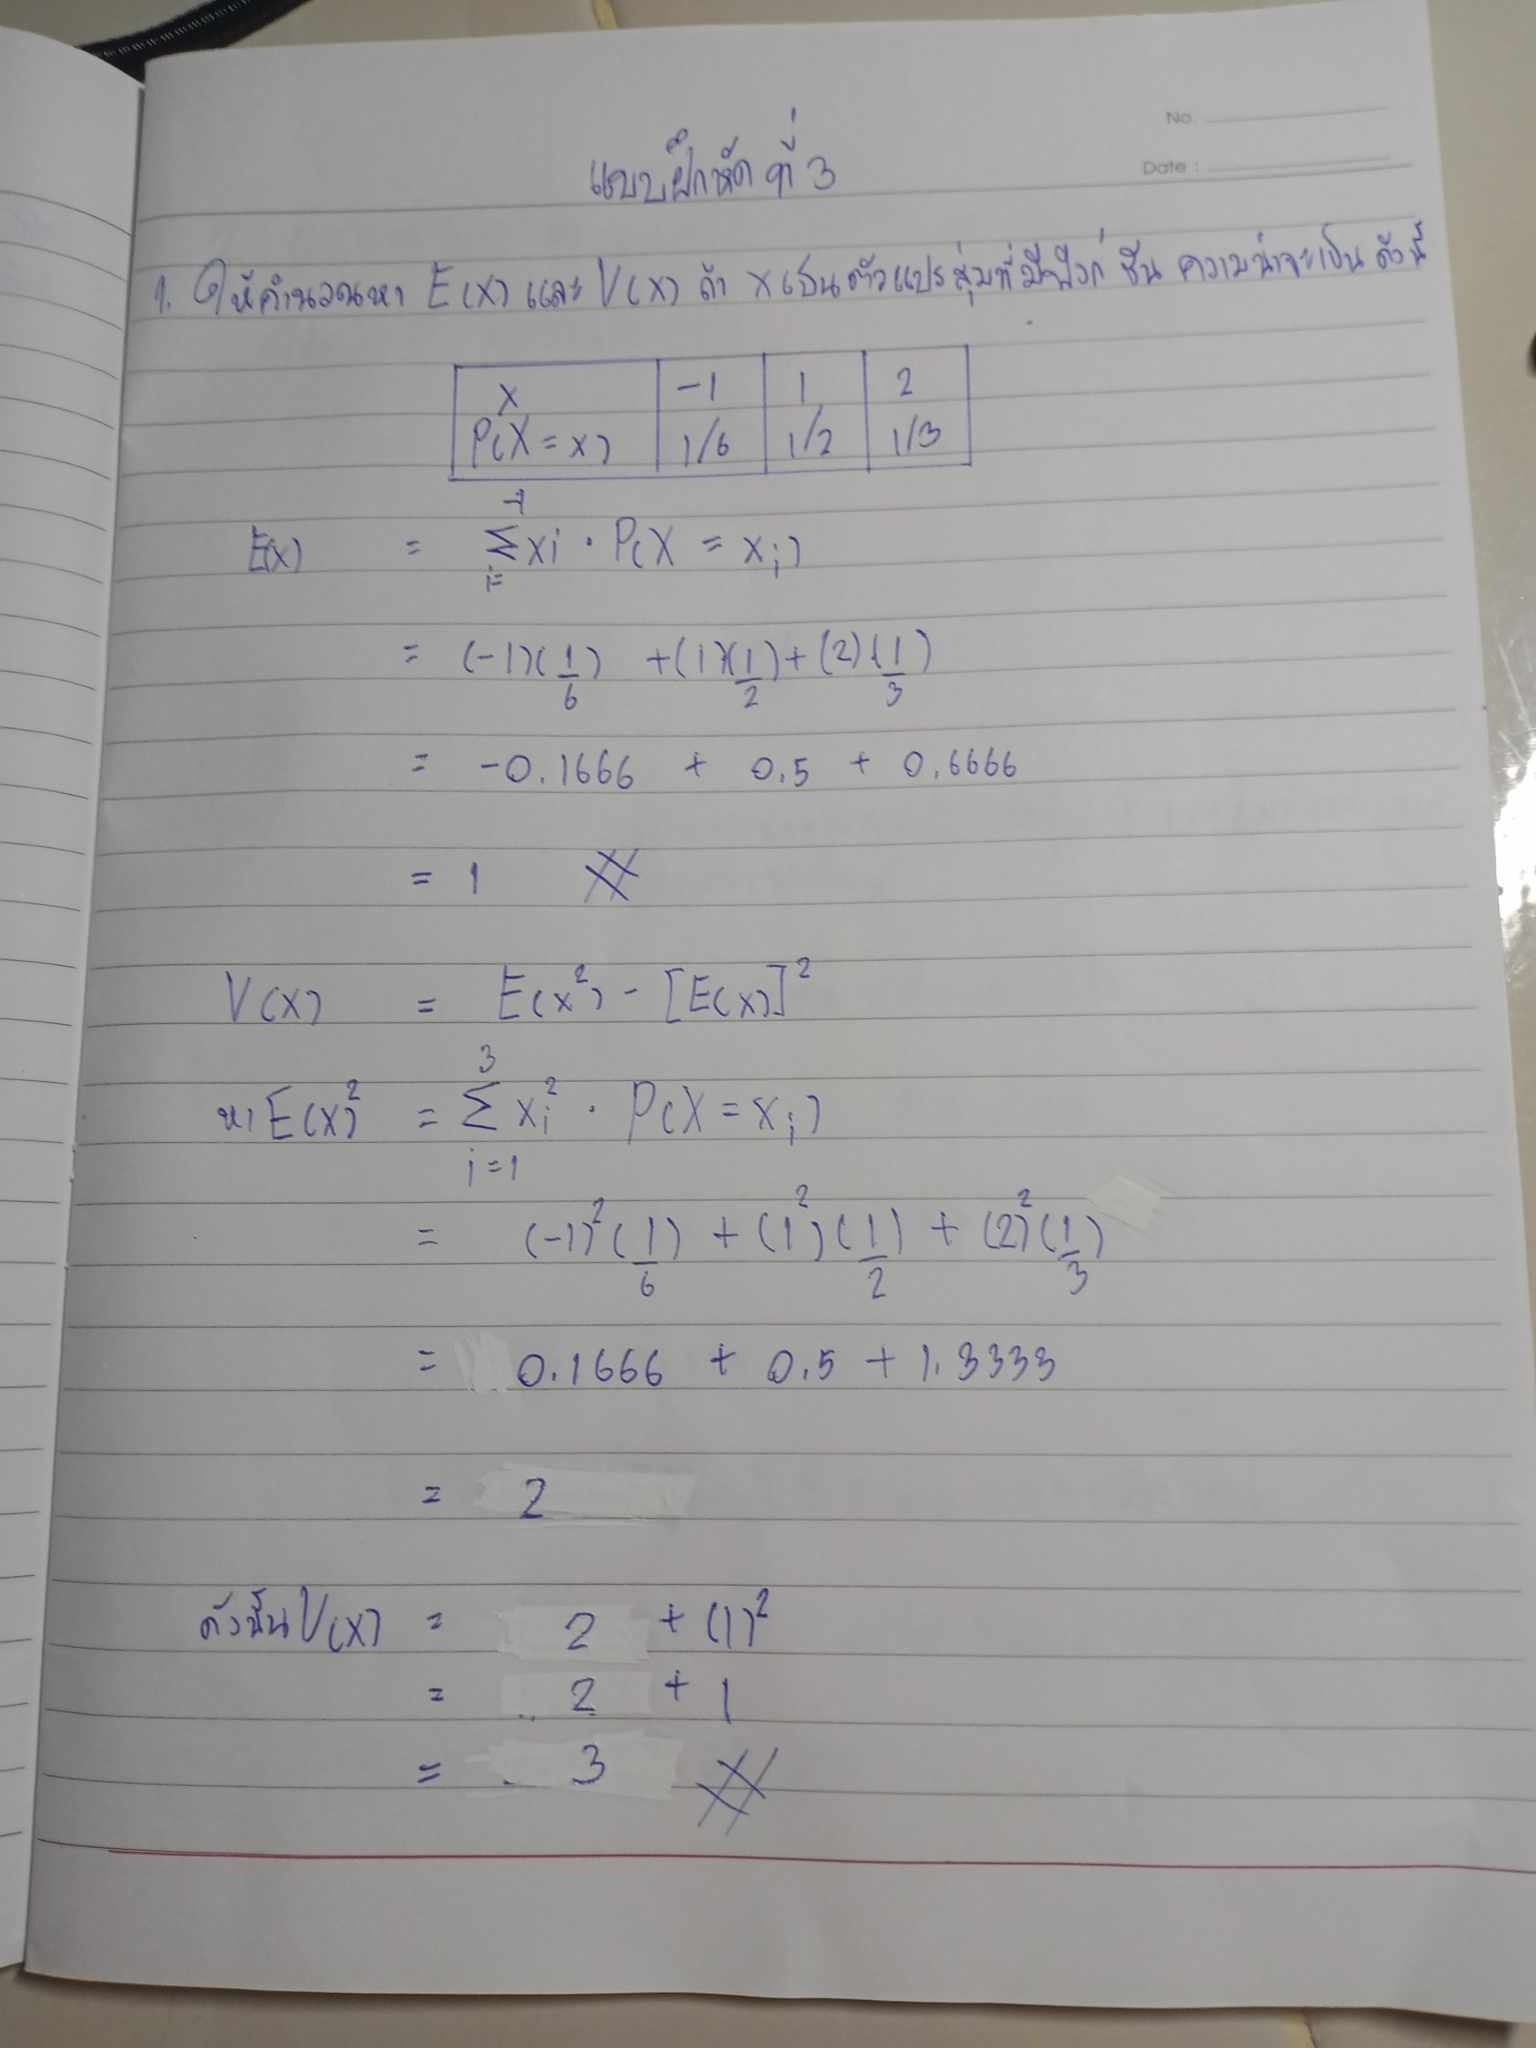 No.
Date :
แบบฝึกหัด ที่ 3
1. ให้คำนวณหา E(X) และ V(X) ถ้า X เป็นตัวแปรสุ่มที่มีฟังก์ชัน ความน่าจะเป็น ดังนี้
X -1 1 2
P(X = x) 1/6 1/2 1/3
E(X) = Σ xi · P(X = xi)
i=
= (-1)(1/6) + (1)(1/2) + (2)(1/3)
= -0.1666 + 0.5 + 0.6666
= 1
V(X) = E(x²) - [E(x)]²
3
หา E(X)² = Σ xi² · P(X = xi)
i=1
= (-1)²(1/6) + (1²)(1/2) + (2)²(1/3)
= 0.1666 + 0.5 + 1.3333
= 2
ดังนั้น V(X) = 2 + (1)²
= 2 + 1
= 3